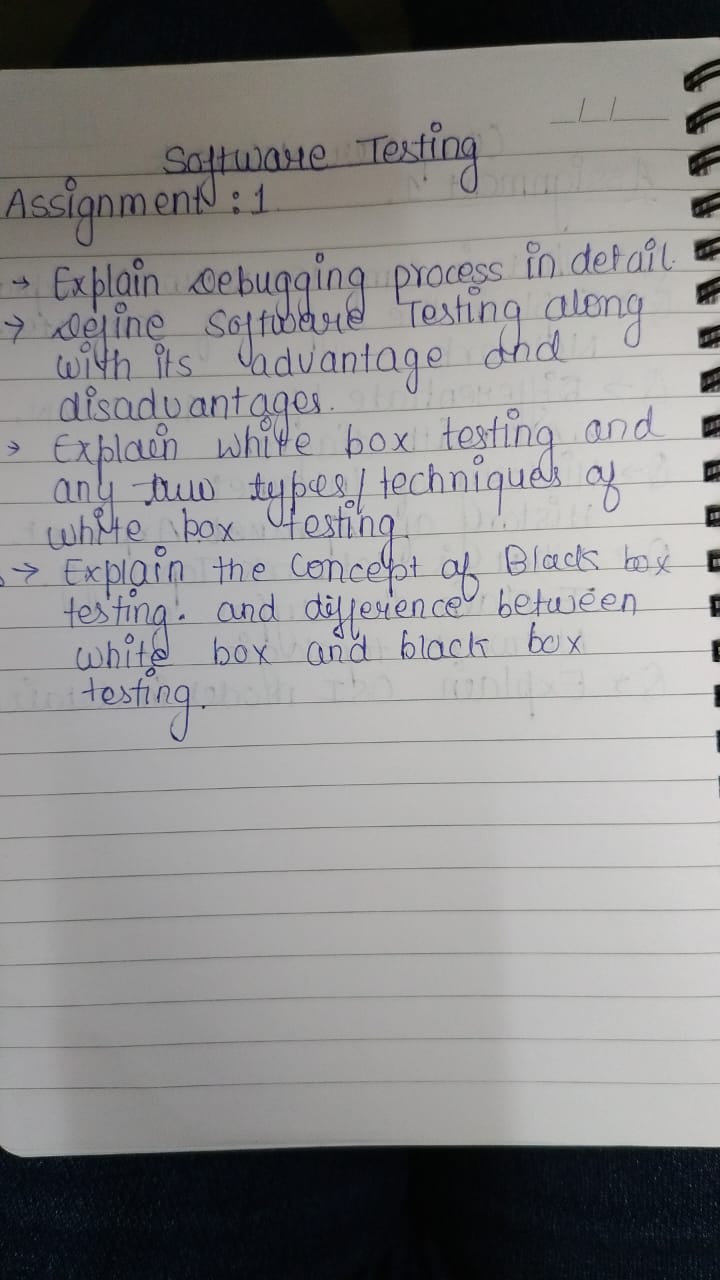 Software Testing
Assignment : 1
→ Explain Debugging process in detail.
→ Define Software Testing along
with its advantage and
disadvantages.
→ Explain white box testing and
any two types/techniques of
white box testing.
→ Explain the concept of Black box
testing. and difference between
white box and black box
testing.